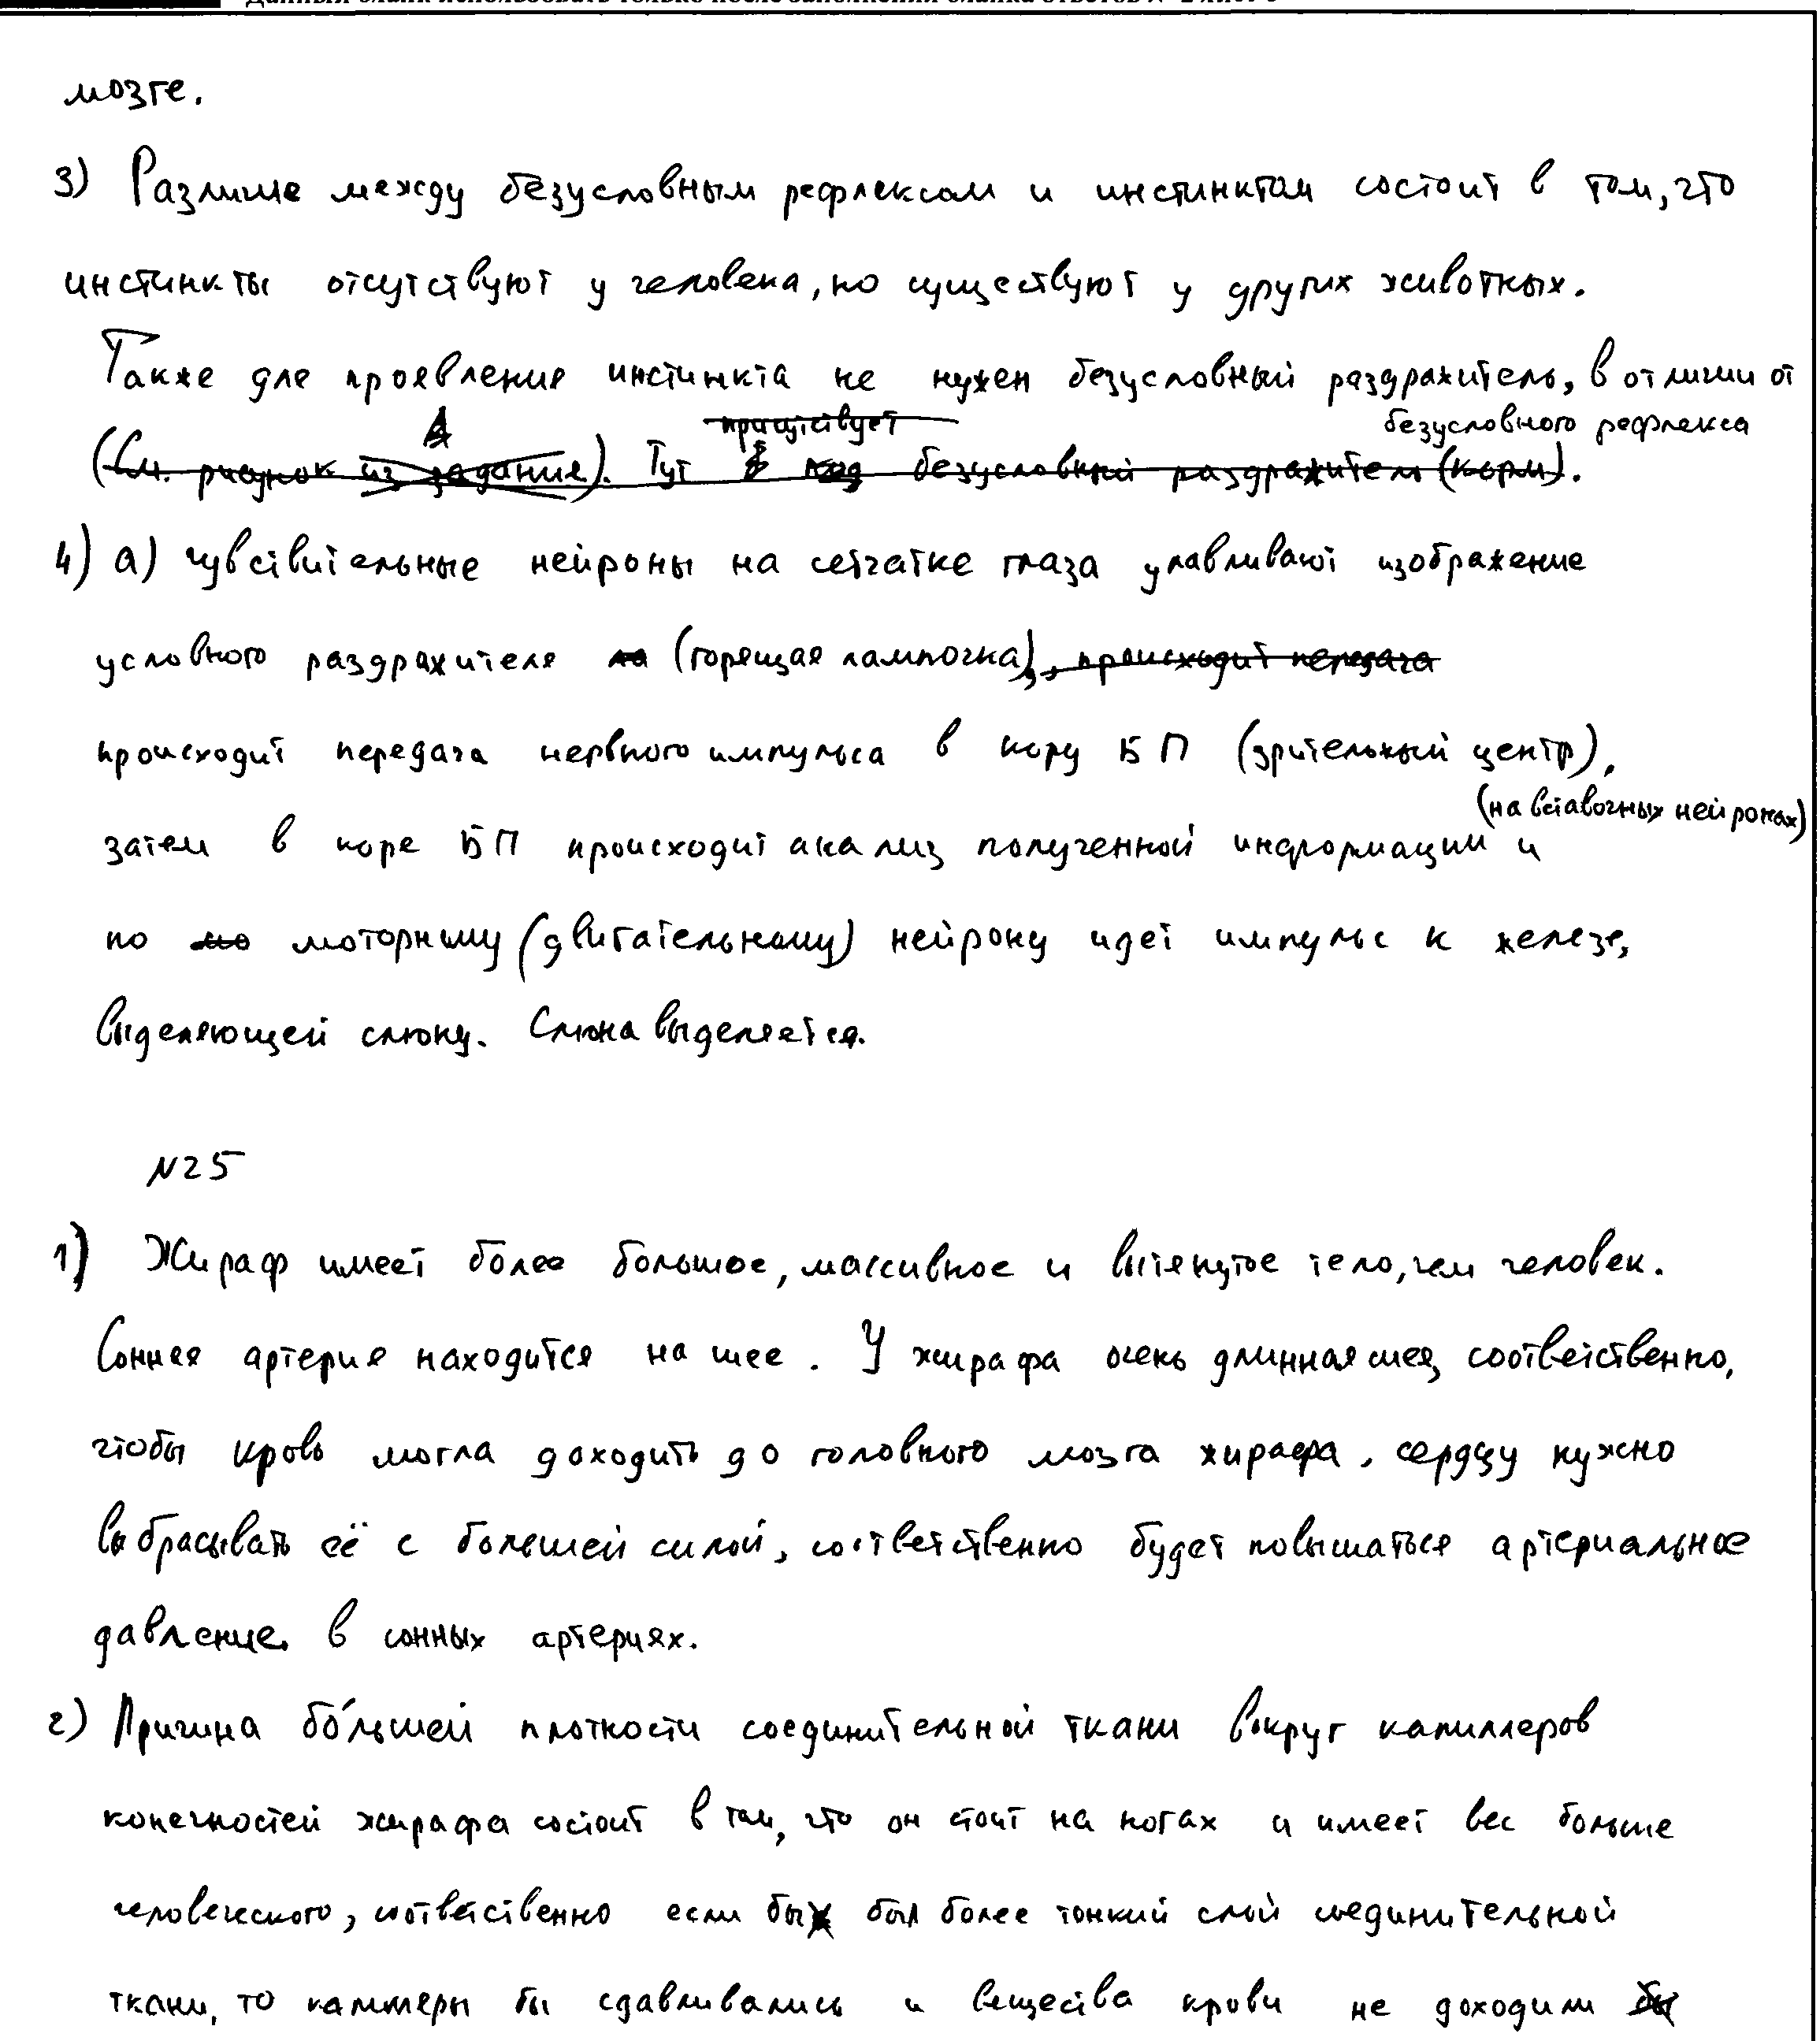 мозге.
3) Различие между безусловным рефлексом и инстинктом состоит в том, что
инстинкты отсутствуют у человека, но существуют у других животных.
Также для проявления инстинкта не нужен безусловный раздражитель, в отличии от
безусловного рефлекса
присутствует
(См. рисунок из задания). Тут безусловный раздражитель (корм).
4) а) чувствительные нейроны на сетчатке глаза улавливают изображение
условного раздражителя (горящая лампочка), происходит передача
происходит передача нервного импульса в кору БП (зрительный центр),
(на вставочных нейронах)
затем в коре БП происходит анализ полученной информации и
по моторному (двигательному) нейрону идет импульс к железе,
выделяющей слюну. Слюна выделяется.
№25
1) Жираф имеет более большое, массивное и вытянутое тело, чем человек.
Сонная артерия находится на шее. У жирафа очень длинная шея, соответственно,
чтобы кровь могла доходить до головного мозга жирафа, сердцу нужно
выбрасывать её с большей силой, соответственно будет повышаться артериальное
давление в сонных артериях.
2) Причина бо́льшей плотности соединительной ткани вокруг капилляров
конечностей жирафа состоит в том, что он стоит на ногах и имеет вес больше
человеческого, соответственно если бы был более тонкий слой соединительной
ткани, то капилляры бы сдавливались и вещества крови не доходили бы